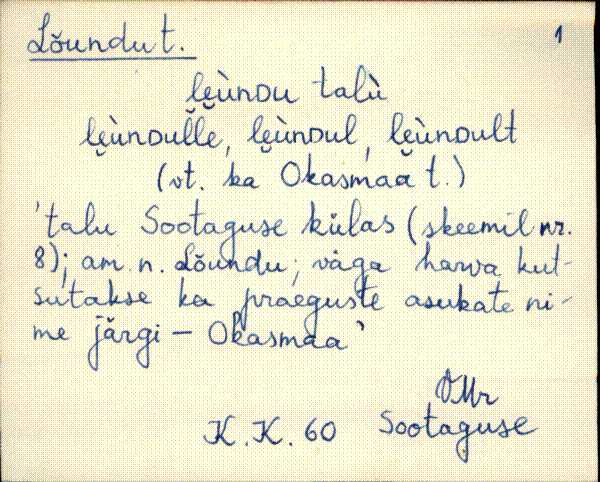 Lõundu t. 1
l̬e̮ùnᴅu talù
l̬e̮ùnᴅulle, l̬e̮ùnᴅul, l̬e̮ùnᴅult
(vt. ka Okasmaa t.)
'talu Sootaguse külas (skeemil nr.
8); am. n. Lõundu; väga harva kut-
sutakse ka praeguste asukate ni-
me järgi – Okasmaa'
K. K. 60 Sootaguse